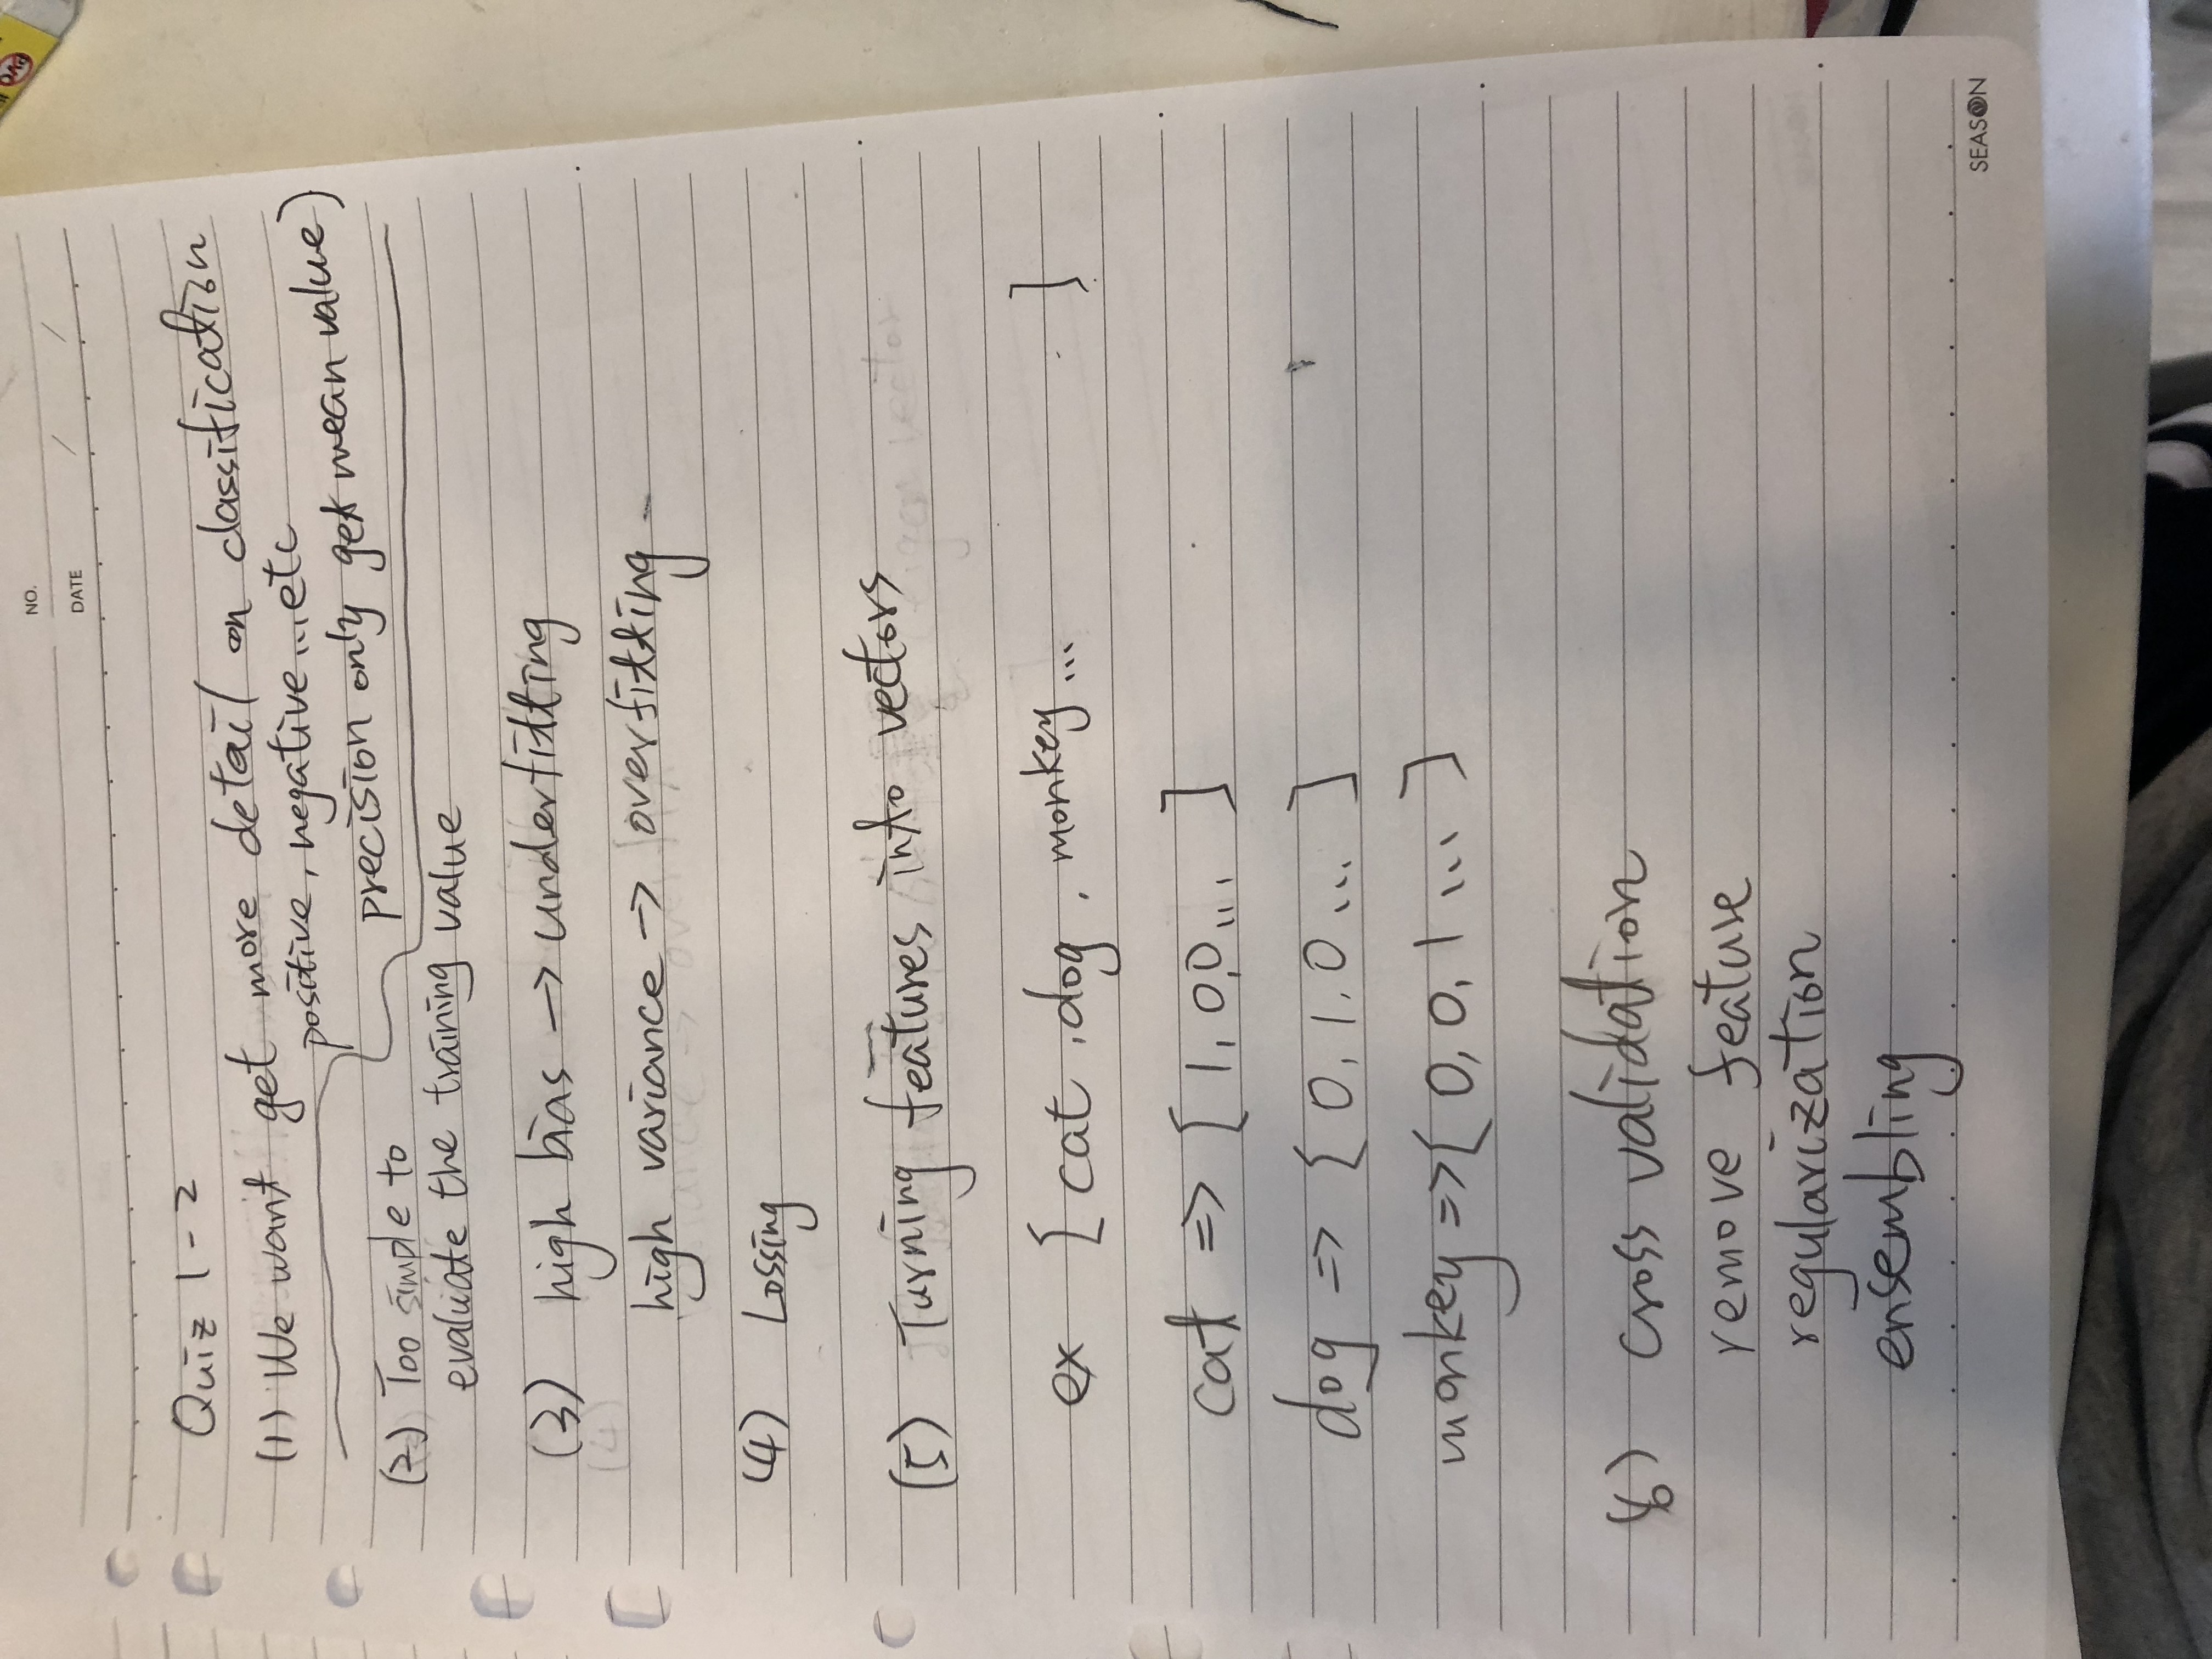 NO.
DATE / /
Quiz 1-2
(1) We want get more detail on classification
positive, negative...etc
precision only get mean value)
(2) Too simple to
evaluate the training value
(3) high bias → underfitting
(4)
high variance → overfitting
(4) Lossing
(5) Turning features into vectors
ex [ cat , dog , monkey... ]
cat => [ 1, 0,0... ]
dog => [ 0, 1, 0 ... ]
monkey => [ 0, 0, 1 ... ]
(6) cross validation
remove feature
regularization
ensembling
SEASON